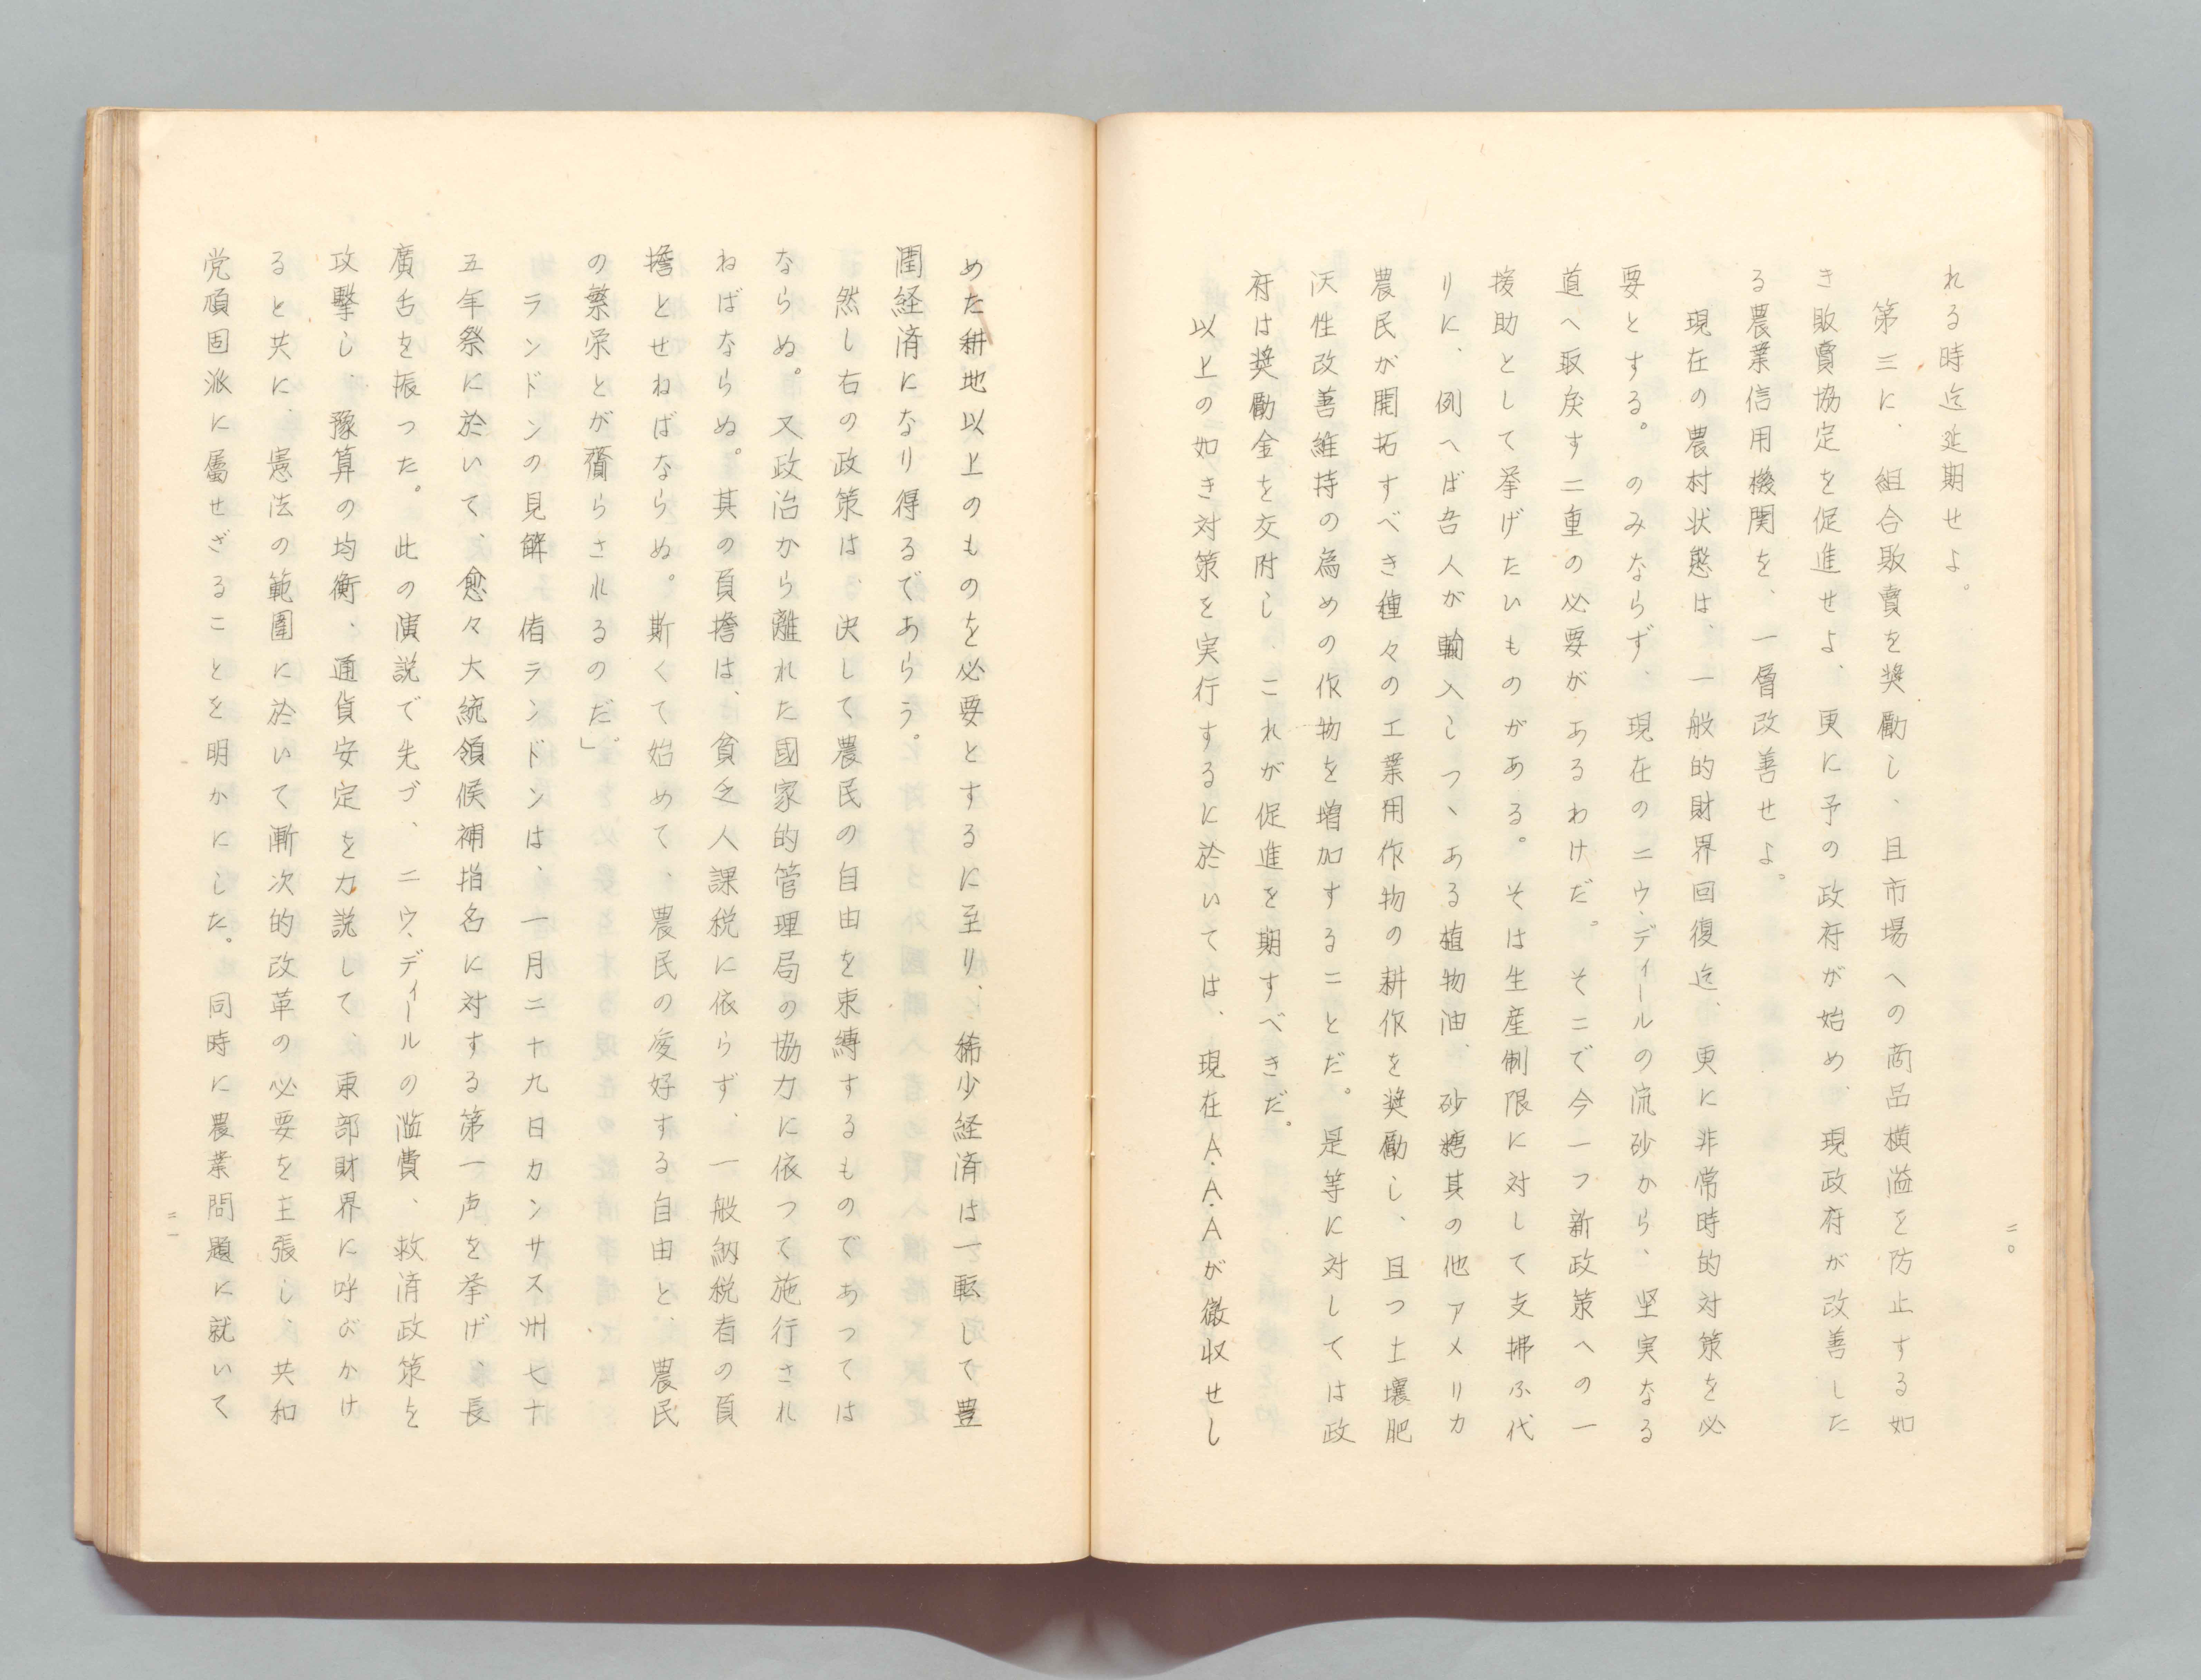 れる時迄延期せよ。
第三に、組合販賣を奬勵し、且市場への商品横溢を防止する如
き販賣協定を促進せよ、更に予の政府が始め、現政府が改善した
る農業信用機関を、一層改善せよ。
現在の農村状態は、一般的財界回復迄、更に非常時的対策を必
要とする。のみならず、現在のニウ・ディールの流砂から、坚実なる
道へ取戾す二重の必要があるわけだ。そこで今一つ新政策への一
援助として挙げたいものがある。そは生産制限に対して支拂ふ代
りに、例へば吾人が輸入しつゝある植物油、砂糖其の他アメリカ
農民が開拓すべき種々の工業用作物の耕作を奬勵し、且つ土壤肥
沃性改善維持の為めの作物を増加することだ。是等に対しては政
府は奬勵金を交附し、これが促進を期すべきだ。
以上の如き対策を実行するに於いては、現在A・A・Aが徴収せし
二〇
めた耕地以上のものを必要とするに至り、稀少経済は一転して豊
潤経済になり得るであらう。
然し右の政策は、決して農民の自由を束縛するものであつては
ならぬ。又政治から離れた國家的管理局の協力に依つて施行され
ねばならぬ。其の負擔は、貧乏人課税に依らず、一般納税者の負
擔とせねばならぬ。斯くて始めて、農民の愛好する自由と、農民
の繁栄とが齎らされるのだ。」
ランドンの見解　偖ランドンは、一月二十九日カンサス州七十
五年祭に於いて、愈々大統領候補指名に対する第一声を挙げ、長
廣舌を振つた。此の演説で先づ、ニウ・ディールの濫費、救済政策を
攻擊し、豫算の均衡、通貨安定を力説して、東部財界に呼びかけ
ると共に、憲法の範圍に於いて漸次的改革の必要を主張し、共和
党頑固派に屬せざることを明かにした。同時に農業問題に就いて
二一